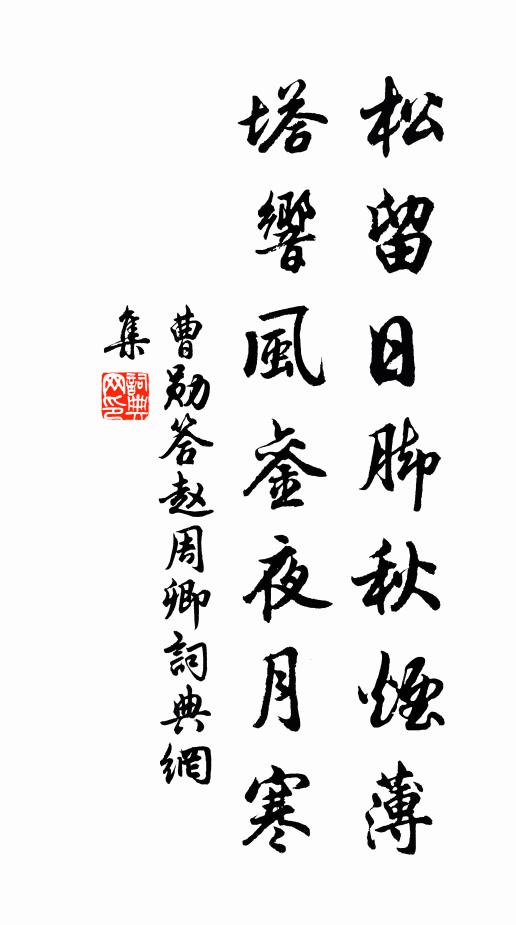 松留日脚秋煙薄
塔響風銮夜月寒
曹勛答赵周卿詞典網
集
詞典
网印